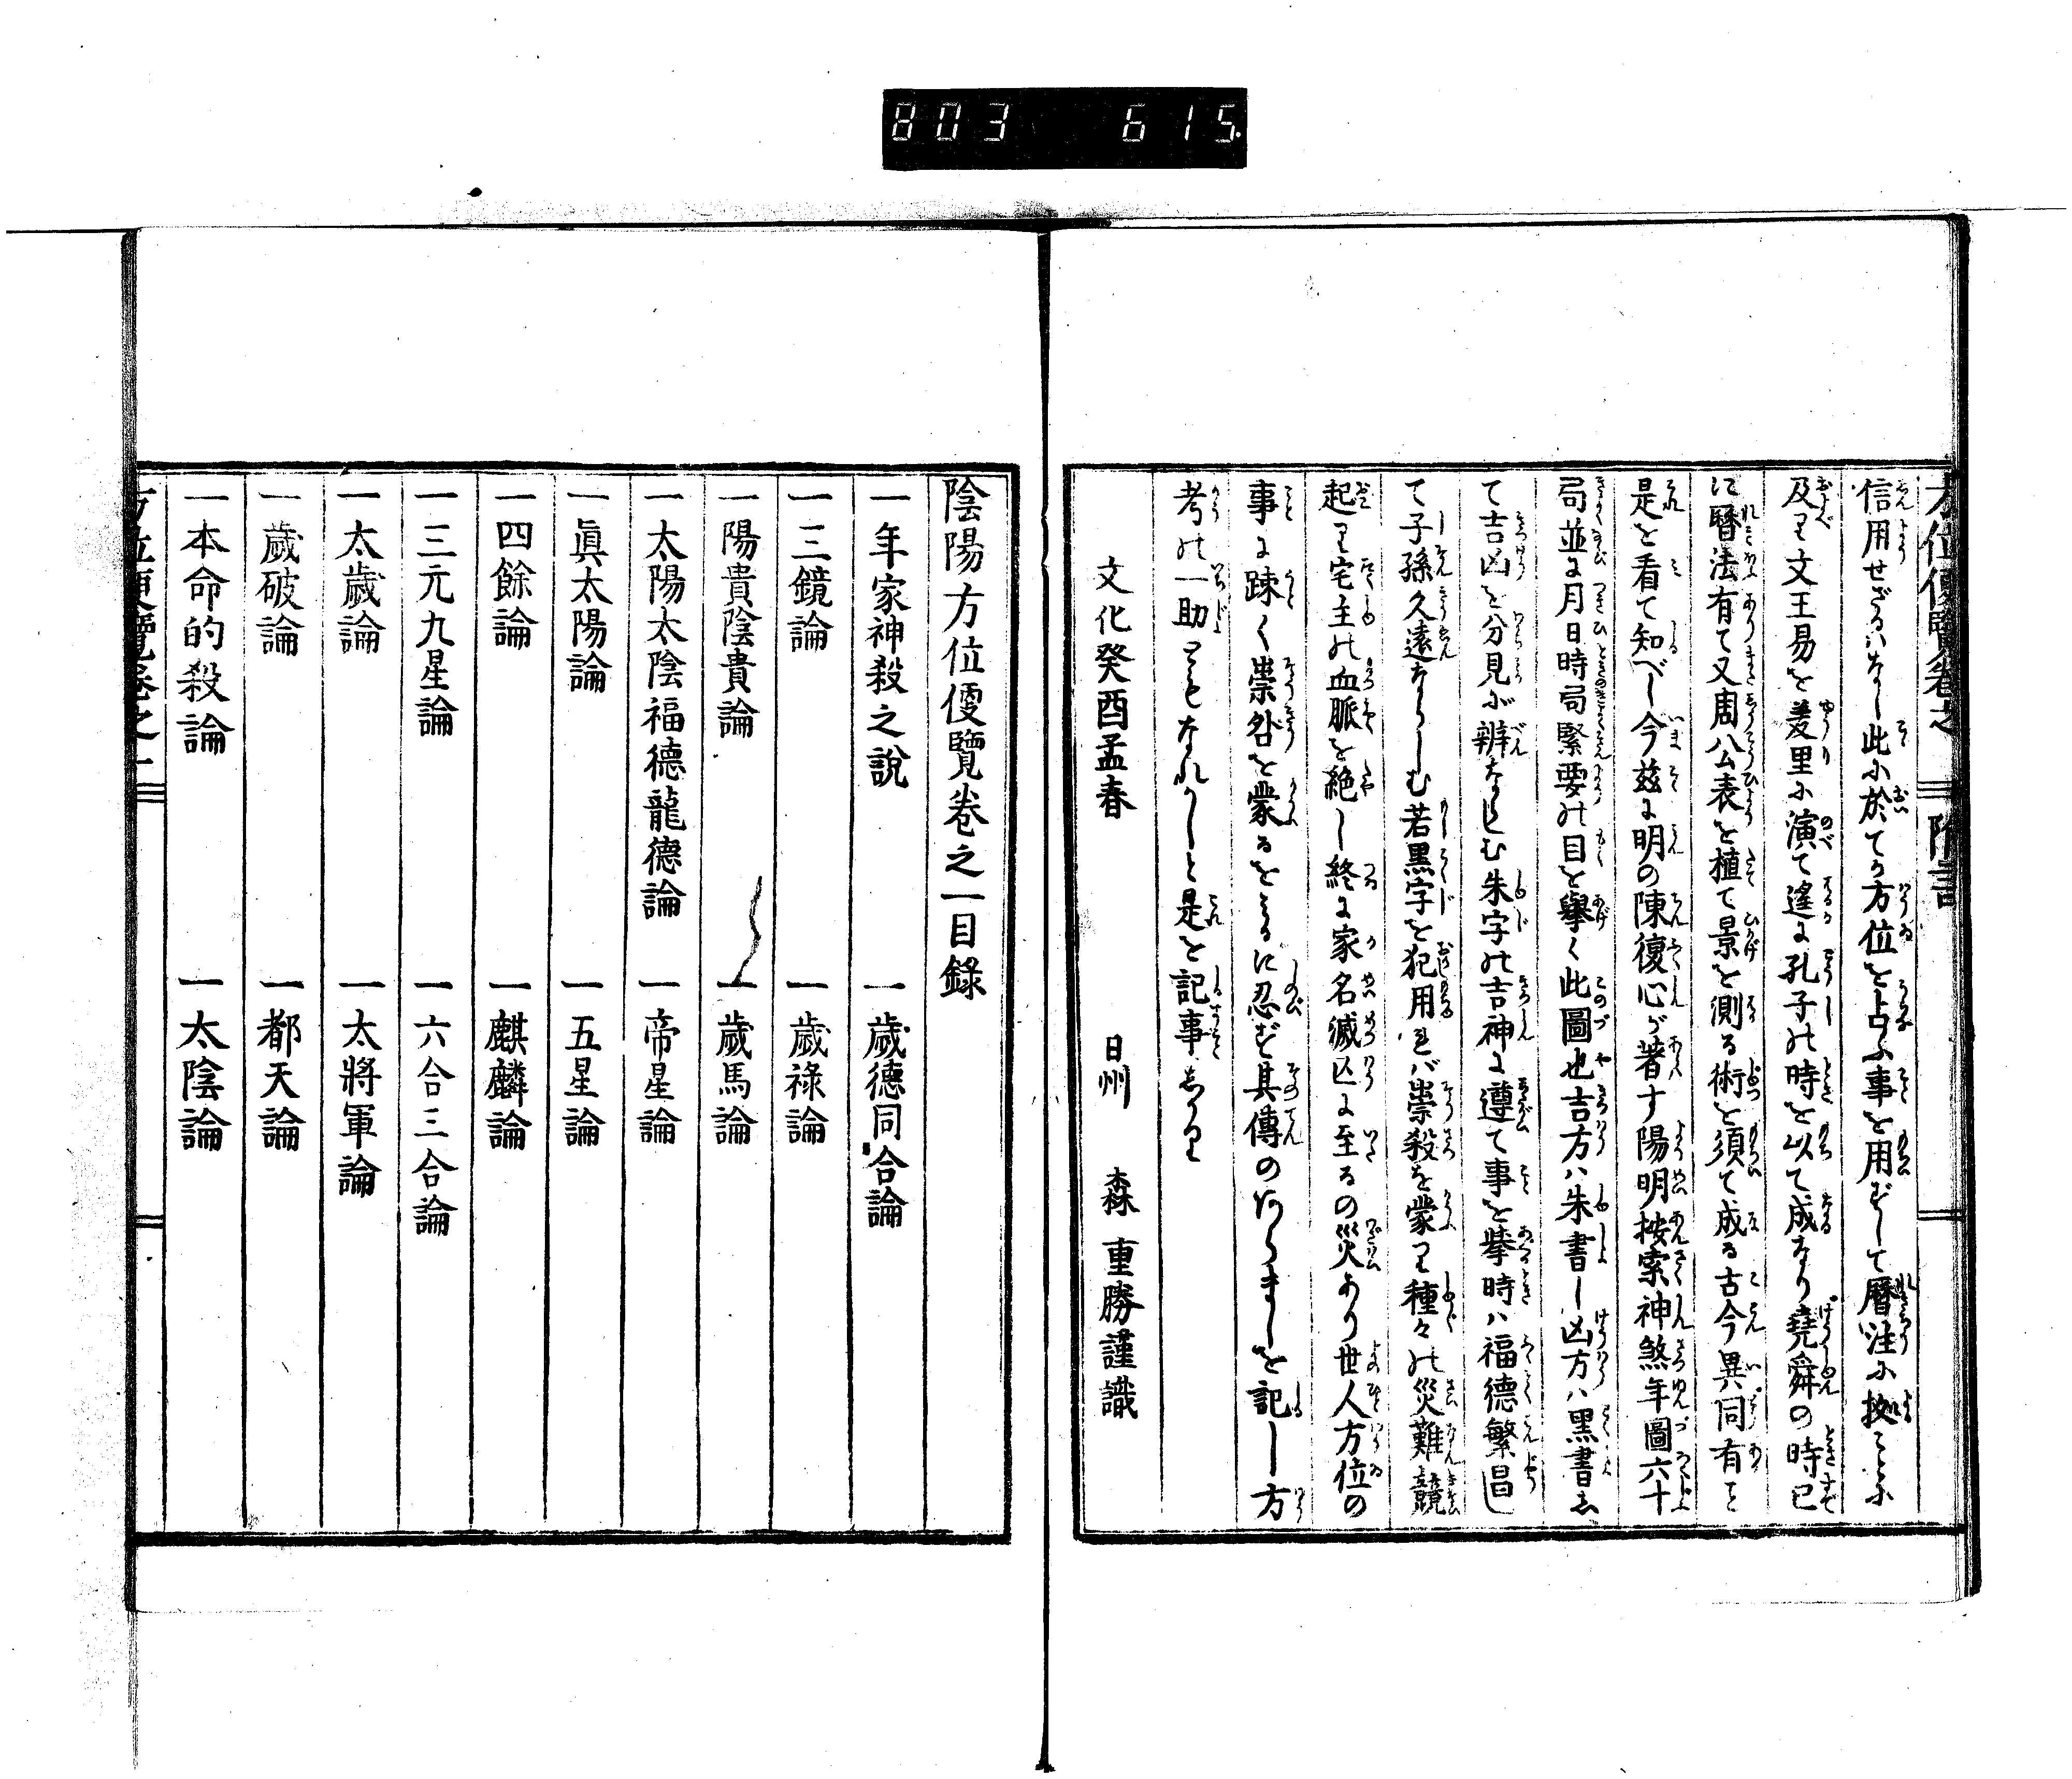 803 615.
信用せざるハなし此に於てか方位を占ふ事を用ずして曆注に拠ことに
及り文王易を羑里に演て遙に孔子の時を以て成なり堯舜の時已
に曆法有て又周公表を植て景を測る術を須て成る古今異同有を
是を看て知べし今茲に明の陳復心が著す陽明按索神煞年圖六十
局並に月日時局緊要の目を擧く此圖也吉方ハ朱書し凶方ハ黑書し
て吉凶を分見が辨ならしむ朱字の吉神に遵て事を擧時ハ福德繁昌し
て子孫久遠ならしむ若黑字を犯用れバ祟殺を蒙り種々の災難競
起り宅主の血脈を絶し終に家名滅亡に至るの災あり世人方位の
事に疎く祟咎を蒙るをみるに忍ず其傳のあらましを記し方
考の一助ともなれかしと是を記事しかり
文化癸酉孟春 日州 森重勝謹識
陰陽方位便覽卷之一目錄
一年家神殺之說 一歲德同合論
一三鏡論 一歲祿論
一陽貴陰貴論 一歲馬論
一太陽太陰福德龍德論 一帝星論
一眞太陽論 一五星論
一四餘論 一麒麟論
一三元九星論 一六合三合論
一太歲論 一太將軍論
一歲破論 一都天論
一本命的殺論 一太陰論
方位便覽卷之一